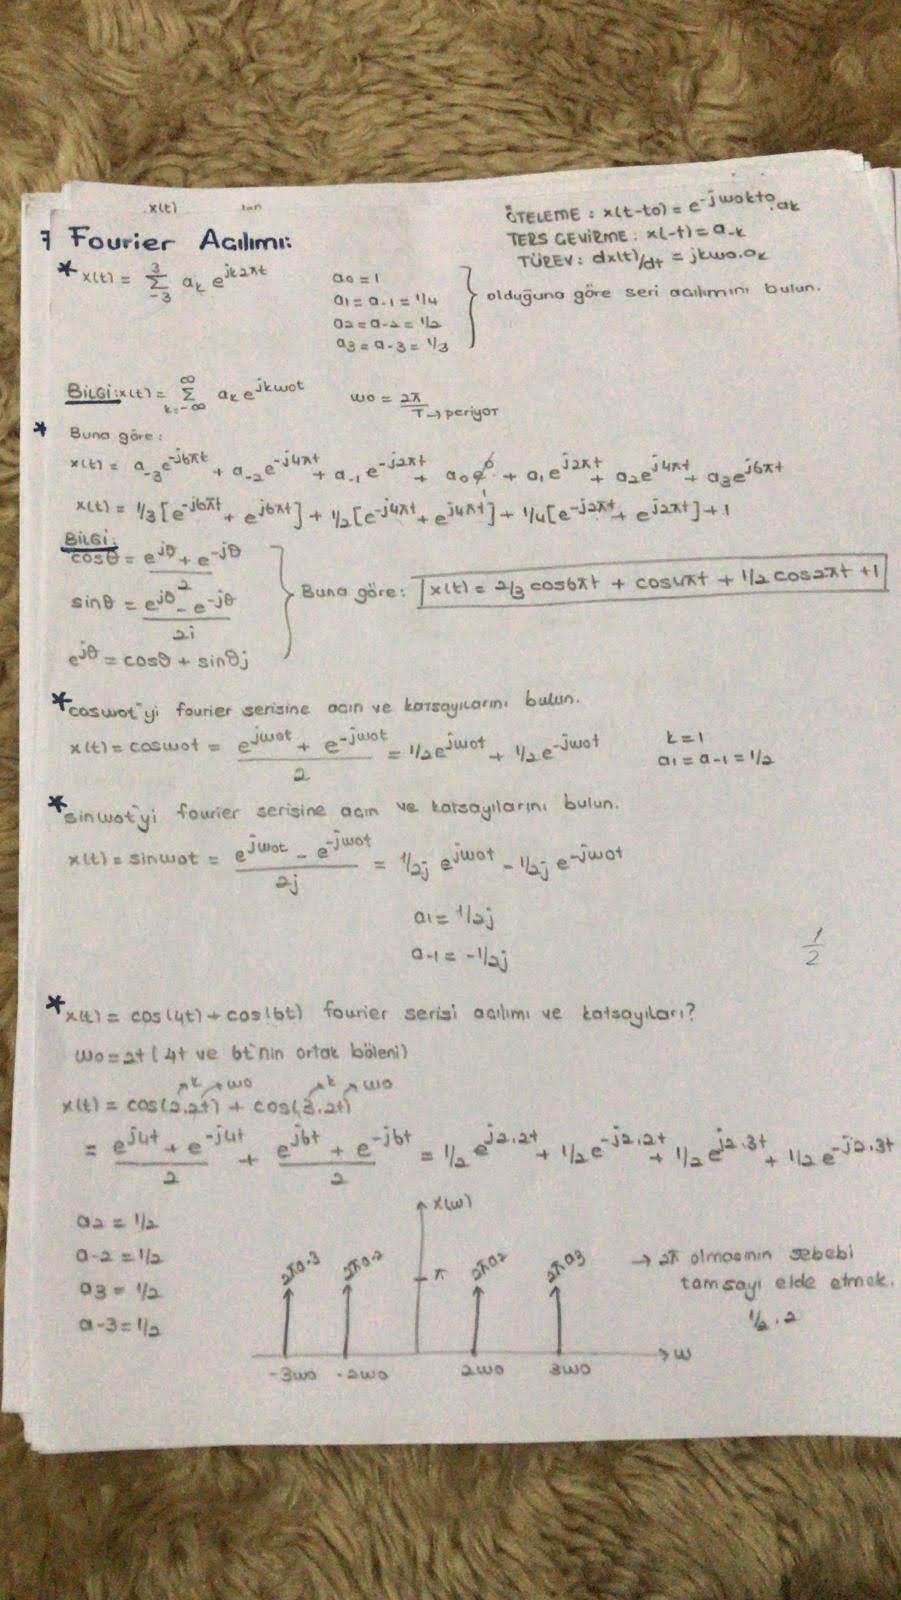 x(t)
ÖTELEME : x(t-to) = e^-jwokto.ak
7 Fourier Acılımı:
TERS ÇEVİRME : x(-t) = a-k
TÜREV : dx(t)/dt = jkwo.ak
* x(t) = Σ(-3, 3) ak e^jk2πt
a0 = 1
a1 = a-1 = 1/4
a2 = a-2 = 1/2
a3 = a-3 = 1/3
} olduğuna göre seri acılımını bulun.
BİLGİ: x(t) = Σ(k=-∞, ∞) ak e^jkwot wo = 2π/T → periyor
* Buna göre :
x(t) = a-3e^-j6πt + a-2e^-j4πt + a-1e^-j2πt + a0e^0 + a1e^j2πt + a2e^j4πt + a3e^j6πt
1
x(t) = 1/3[e^-j6πt + e^j6πt] + 1/2[e^-j4πt + e^j4πt] + 1/4[e^-j2πt + e^j2πt] + 1
BİLGİ:
cosθ = (e^jθ + e^-jθ)/2
sinθ = (e^jθ - e^-jθ)/2i
e^jθ = cosθ + sinθj
} Buna göre: x(t) = 2/3 cos6πt + cos4πt + 1/2 cos2πt + 1
* coswot"yi fourier serisine acın ve katsayılarını bulun.
x(t) = coswot = (e^jwot + e^-jwot)/2 = 1/2e^jwot + 1/2e^-jwot
k = 1
a1 = a-1 = 1/2
* sinwot"yi fourier serisine acın ve katsayılarını bulun.
x(t) = sinwot = (e^jwot - e^-jwot)/2j = 1/2j e^jwot - 1/2j e^-jwot
a1 = 1/2j
a-1 = -1/2j
1/2
* x(t) = cos(4t) + cos(6t) fourier serisi acılımı ve katsayıları?
wo = 2t (4t ve 6t"nin ortak böleni)
k wo k wo
x(t) = cos(2.2t) + cos(3.2t)
= (e^j4t + e^-j4t)/2 + (e^j6t + e^-j6t)/2 = 1/2 e^j2.2t + 1/2e^-j2.2t + 1/2 e^j2.3t + 1/2 e^-j2.3t
x(w)
a2 = 1/2
a-2 = 1/2
a3 = 1/2
a-3 = 1/2
2πa-3 2πa-2 π 2πa2 2πa3
→ 2π olmasının sebebi
tamsayı elde etmek.
1/2 . 2
-3wo -2wo 2wo 3wo w